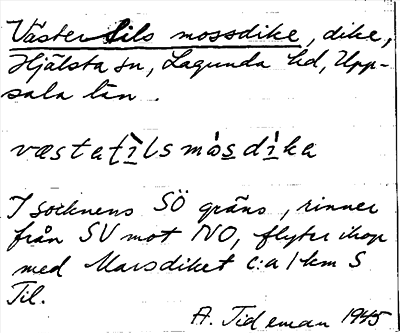 Västertils mossdike, dike,
Hjälsta sn, Lagunda hd, Upp-
sala län.
væstatìlsmòsdìka
I socknens SÖ gräns, rinner
från SV mot NO, flyter ihop
med Marsdiket c:a 1 km S
Til.
A. Tideman 1945